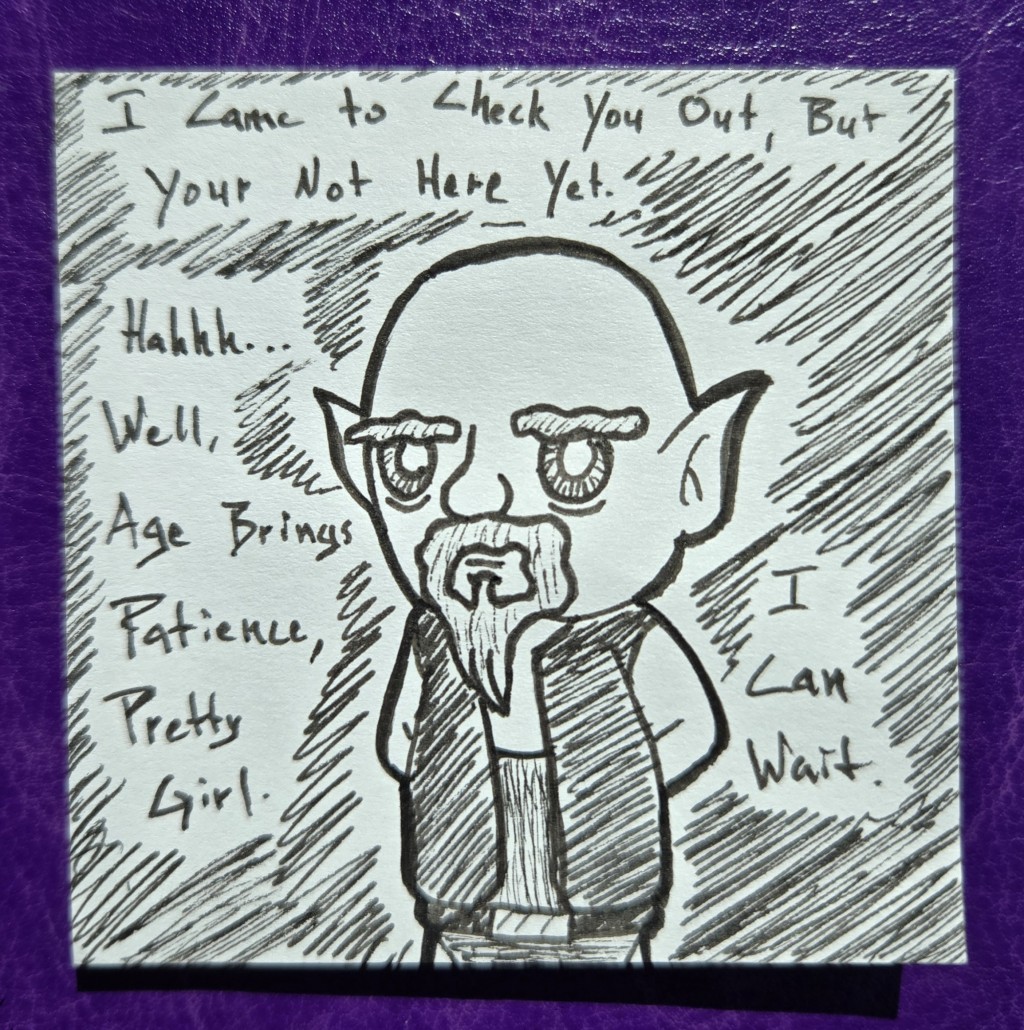 I Came to Check You Out, But
Your Not Here Yet.
Hahhh...
Well,
Age Brings
Patience,
Pretty
Girl.
I
Can
Wait.